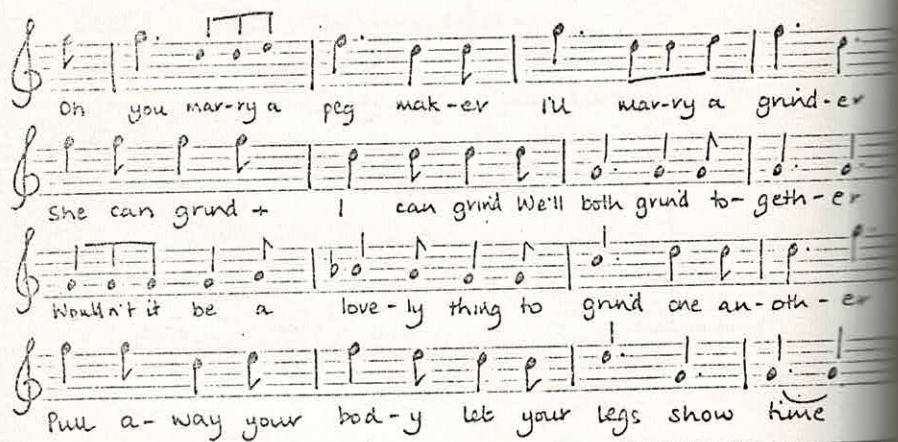 Oh you mar-ry a peg mak-er I'll mar-ry a grind-er
She can grind + I can grind We'll both grind to-geth-er
Wouldn't it be a love-ly thing to grind one an-oth-er
Pull a-way your bod-y let your legs show time